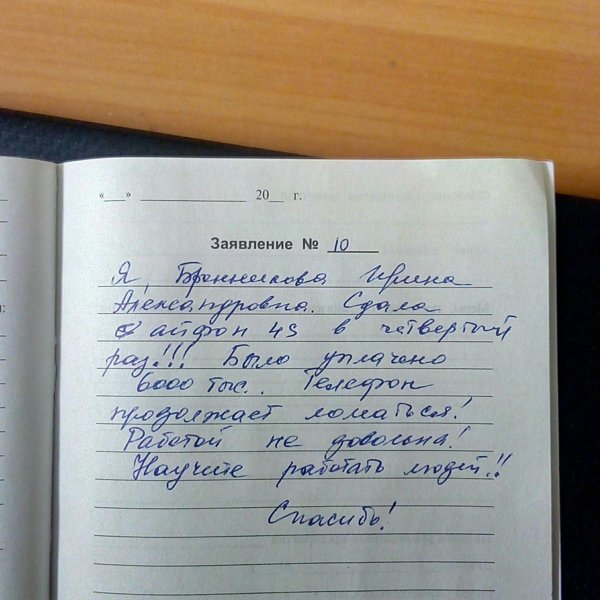 «__» ______________ 20__ г.
Заявление № 10
Я, Бронникова Ирина
Александровна. Сдала
айфон 4s в четвертый
раз!!! Было уплачено
6000 тыс.. Телефон
продолжает ломаться!
Работой не довольна!
Научите работать людей!!
Спасибо!